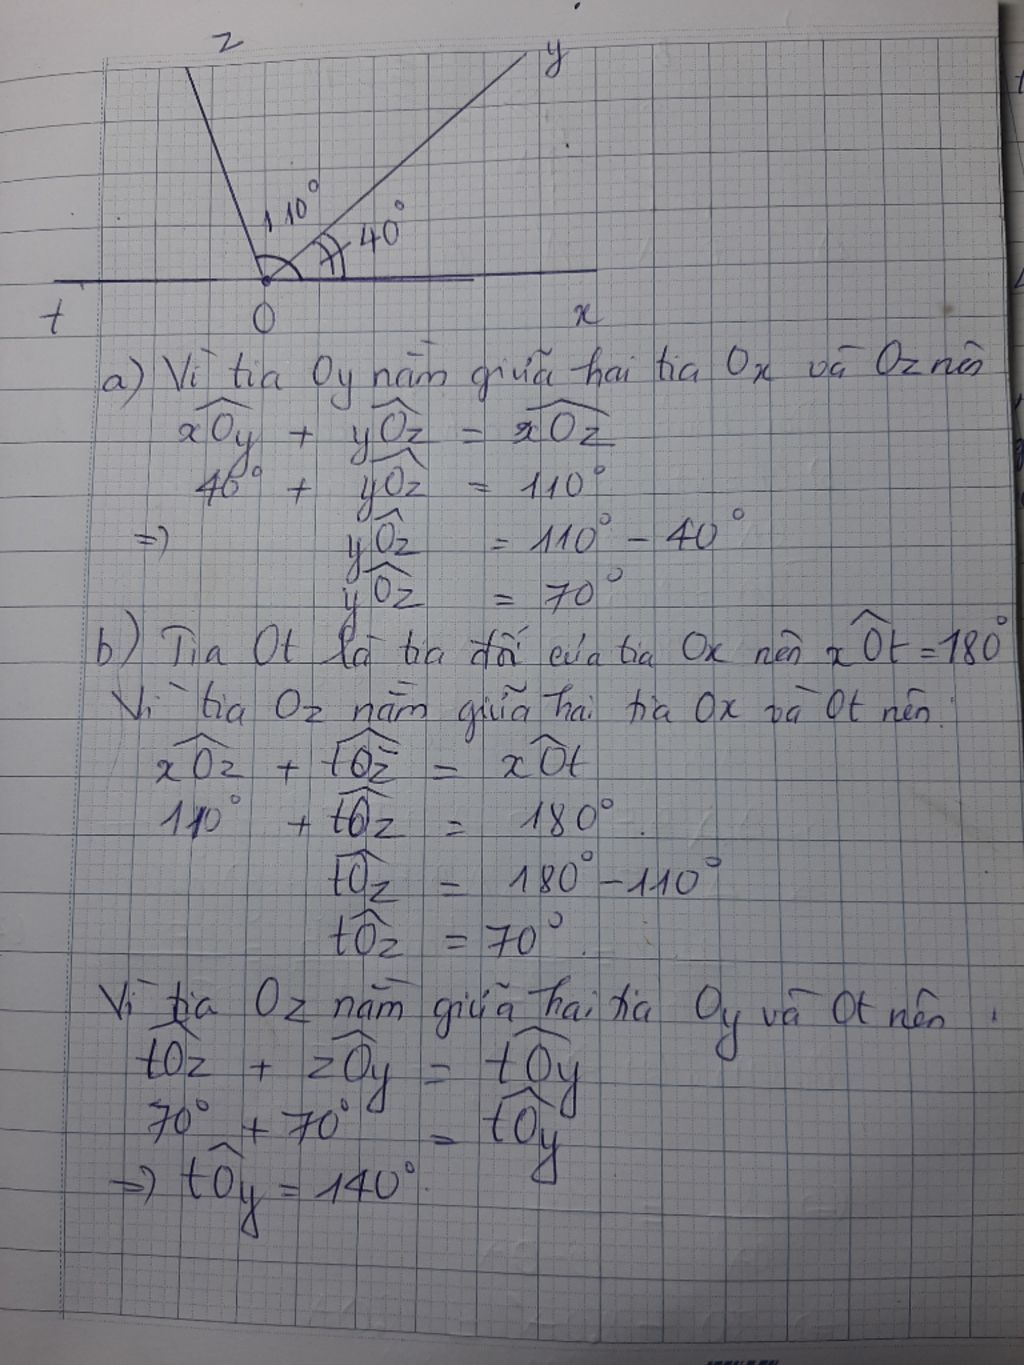 z
y
110°
40°
t
O
x
a) Vì tia Oy nằm giữa hai tia Ox và Oz nên
xÔy + yÔz = xÔz
40° + yÔz = 110°
=> yÔz = 110° - 40°
yÔz = 70°
b) Tia Ot là tia đối của tia Ox nên xÔt = 180°
Vì tia Oz nằm giữa hai tia Ox và Ot nên:
xÔz + tÔz = xÔt
110° + tÔz = 180°.
tÔz = 180° - 110°
tÔz = 70°.
Vì tia Oz nằm giữa hai tia Oy và Ot nên
tÔz + zÔy = tÔy
70° + 70° = tÔy
=> tÔy = 140°.